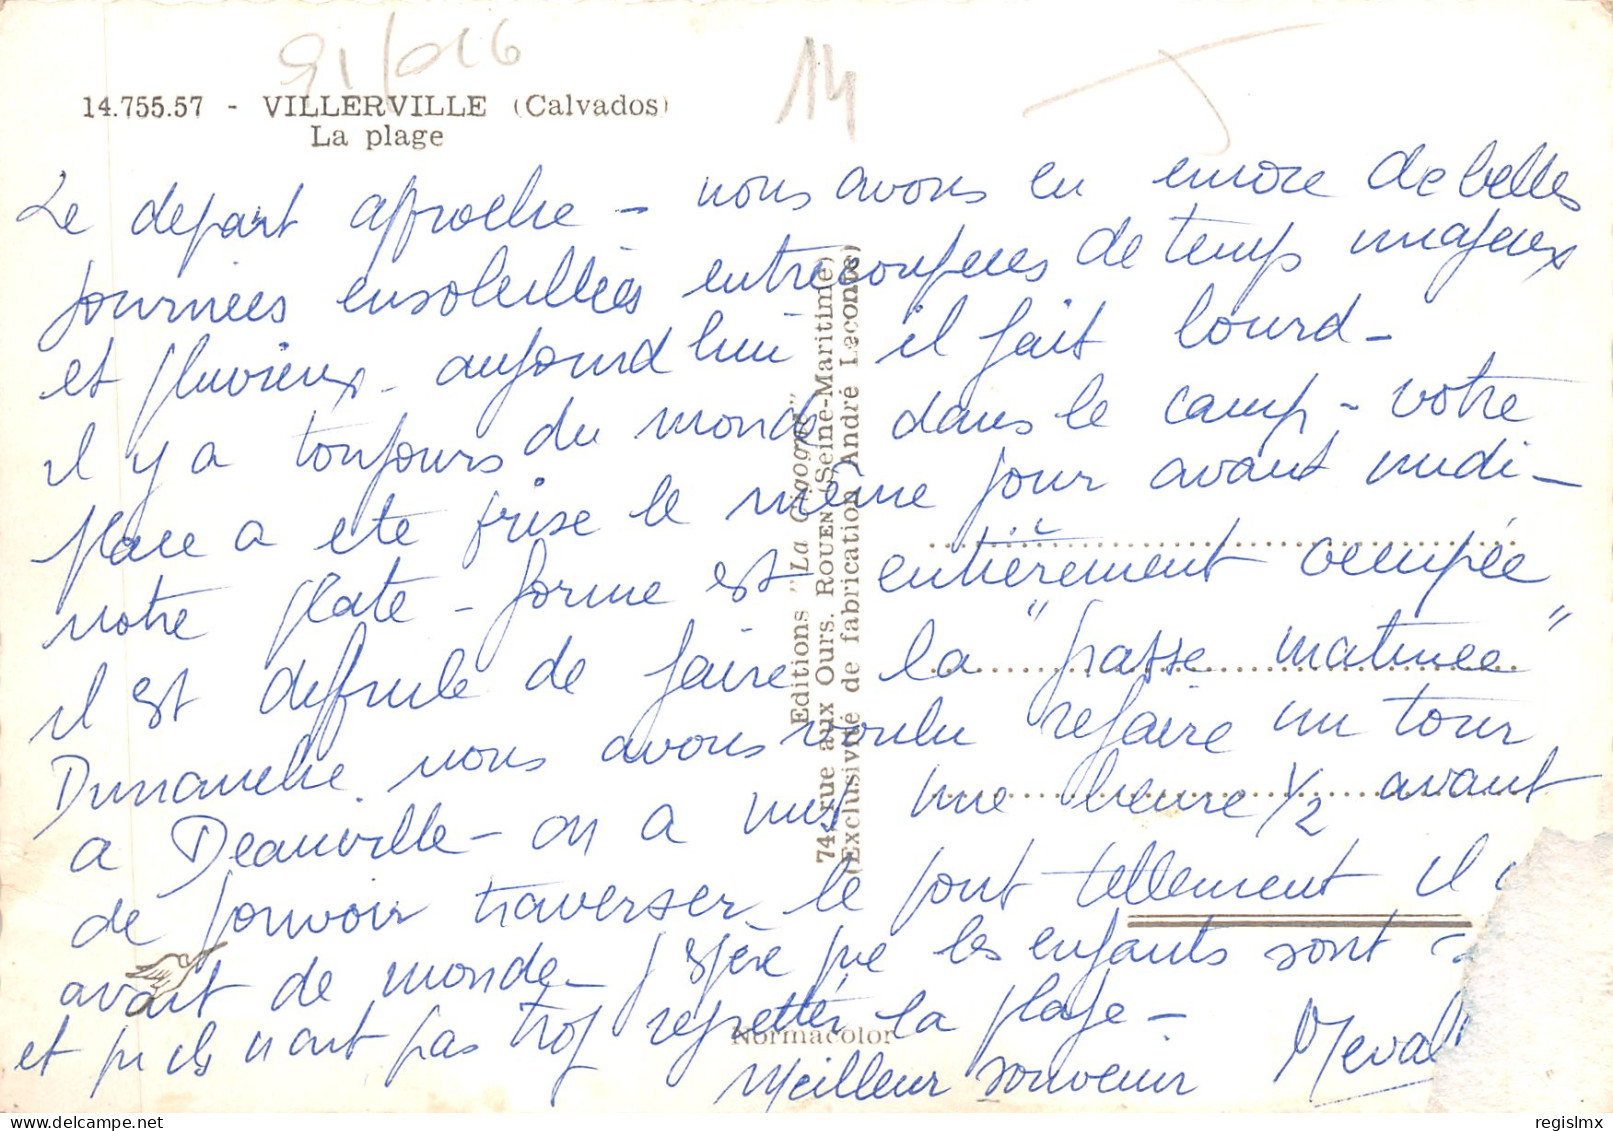 91/016
14
14.755.57 - VILLERVILLE (Calvados)
La plage
Le depart approche - nous avons eu encore de belles
journées ensoleillées entrecoupées de temps nuageux
et pluvieux - aujourd'hui il fait lourd -
il y a toujours du monde dans le camp - votre
place a ete prise le même jour avant midi -
notre plate-forme est entièrement occupée
il est difficile de faire la "grasse matinee"
Dimanche nous avons voulu refaire un tour
a Deauville - on a mis une heure 1/2 avant
de pouvoir traverser le pont tellement il
avait de monde - j'espère que les enfants sont
et qu'ils n'ont pas trop regretter la plage -
Meilleur souvenir
Editions "La Cigogne"
74, rue aux Ours. ROUEN (Seine-Maritime)
(Exclusivité de fabrication André Leconte)
Normacolor
regislmx